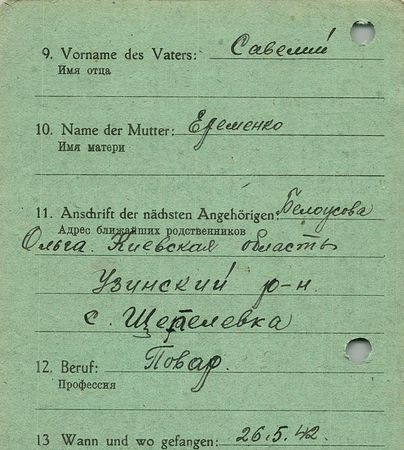 9. Vorname des Vaters: Савелий
Имя отца
10. Name der Mutter: Еременко
Имя матери
11. Anschrift der nächsten Angehörigen: Белоусова
Адрес ближайших родственников
Ольга. Киевская область
Узинский р-н.
с.
12. Beruf: Повар.
Профессия
13 Wann und wo gefangen: 26.5.42.